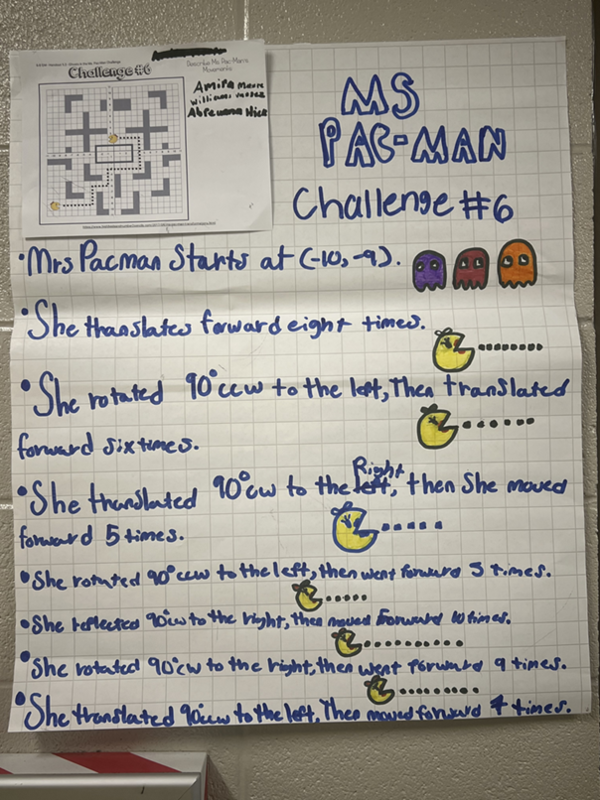 Challenge #6
Describe Ms. Pac-Man's
Movements
Amira
MS
PAC-MAN
Challenge #6
•Mrs Pacman Starts at (-10,-9).
•She translates forward eight times.
•She rotated 90°ccw to the left, Then translated
forward six times.
Right
•She translated 90°cw to the left, then She moved
forward 5 times.
•She rotated 90°ccw to the left, then went forward 3 times.
•She reflected 90°cw to the right, then moved Forward 10 times.
•She rotated 90°cw to the right, then went forward 9 times.
•She translated 90°ccw to the left, Then moved forward 4 times.